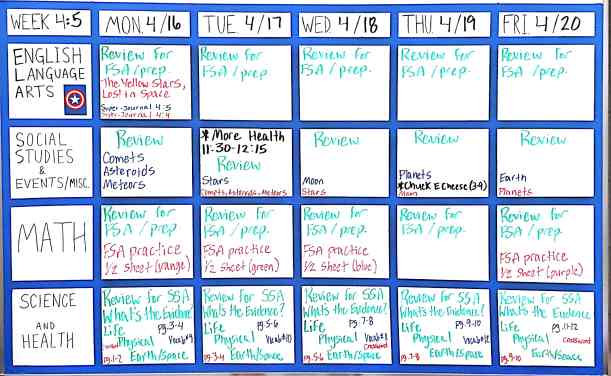 WEEK 4:5
MON. 4/16
TUE. 4/17
WED. 4/18
THU. 4/19
FRI. 4/20
ENGLISH
LANGUAGE
ARTS
Review for
FSA/prep
The Yellow Stars,
Lost in Space
Super-Journal 4:5
Super-Journal 4:4
Review for
FSA/prep.
Review for
FSA/prep.
Review for
FSA/prep.
Review for
FSA/prep.
SOCIAL
STUDIES
&
EVENTS/MISC.
Review
Comets
Asteroids
Meteors
* More Health
11:30-12:15
Review
Stars
Comets, Asteroids, Meteors
Review
Moon
Stars
Review
Planets
*Chuck E Cheese (3-9)
Moon
Review
Earth
Planets
MATH
Review for
FSA/prep
FSA practice
1/2 sheet (orange)
Review for
FSA/prep.
FSA practice
1/2 sheet (green)
Review for
FSA/prep.
FSA practice
1/2 sheet (blue)
Review for
FSA/prep.
Review for
FSA/prep.
FSA practice
1/2 sheet (purple)
SCIENCE
AND
HEALTH
Review for SSA
What's the Evidence?
Life pg. 3-4
Physical
pg. 1-2 Earth/Space
Review for SSA
What's the Evidence?
Life pg. 5-6
Physical
pg. 3-4 Earth/Space
Review for SSA
What's the Evidence?
Life pg. 7-8
Physical
Crossword
pg. 5-6 Earth/Space
Review for SSA
What's the Evidence?
Life pg. 9-10
Physical
pg. 7-8 Earth/Space
Review for SSA
What's the Evidence
Life pg. 11-12
Physical Crossword
pg. 9-10 Earth/Space